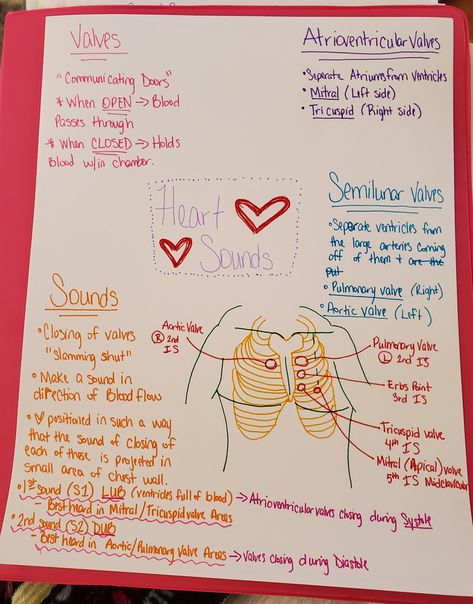 Valves
"Communicating Doors"
* When OPEN → Blood
Passes through
* When CLOSED → Holds
Blood w/in chamber.
Atrioventricular Valves
• Separate Atriums from Ventricles
• Mitral (Left side)
• Tricuspid (Right side)
Heart
Sounds
Semilunar Valves
• Separate ventricles from
the large arteries coming
off of them + are the
put
• Pulmonary valve (Right)
• Aortic valve (Left)
Sounds
• Closing of valves
"Slamming shut"
• Make a sound in
direction of Blood flow
• ♡ positioned in such a way
that the sound of closing of
each of these is projected in
small area of chest wall.
• 1st sound (S1) LUB (ventricles full of blood) → Atrioventricular valves closing during Systole
- Best heard in Mitral/Tricuspid valve Areas
• 2nd sound (S2) DUB
- Best heard in Aortic/Pulmonary Valve Areas → Valves closing during Diastole
Aortic Valve
Ⓡ 2nd
IS
Pulmonary Valve
Ⓛ 2nd
IS
Erbs Point
3rd IS
Tricuspid valve
4th IS
Mitral (Apical) valve
5th IS Midclavicular